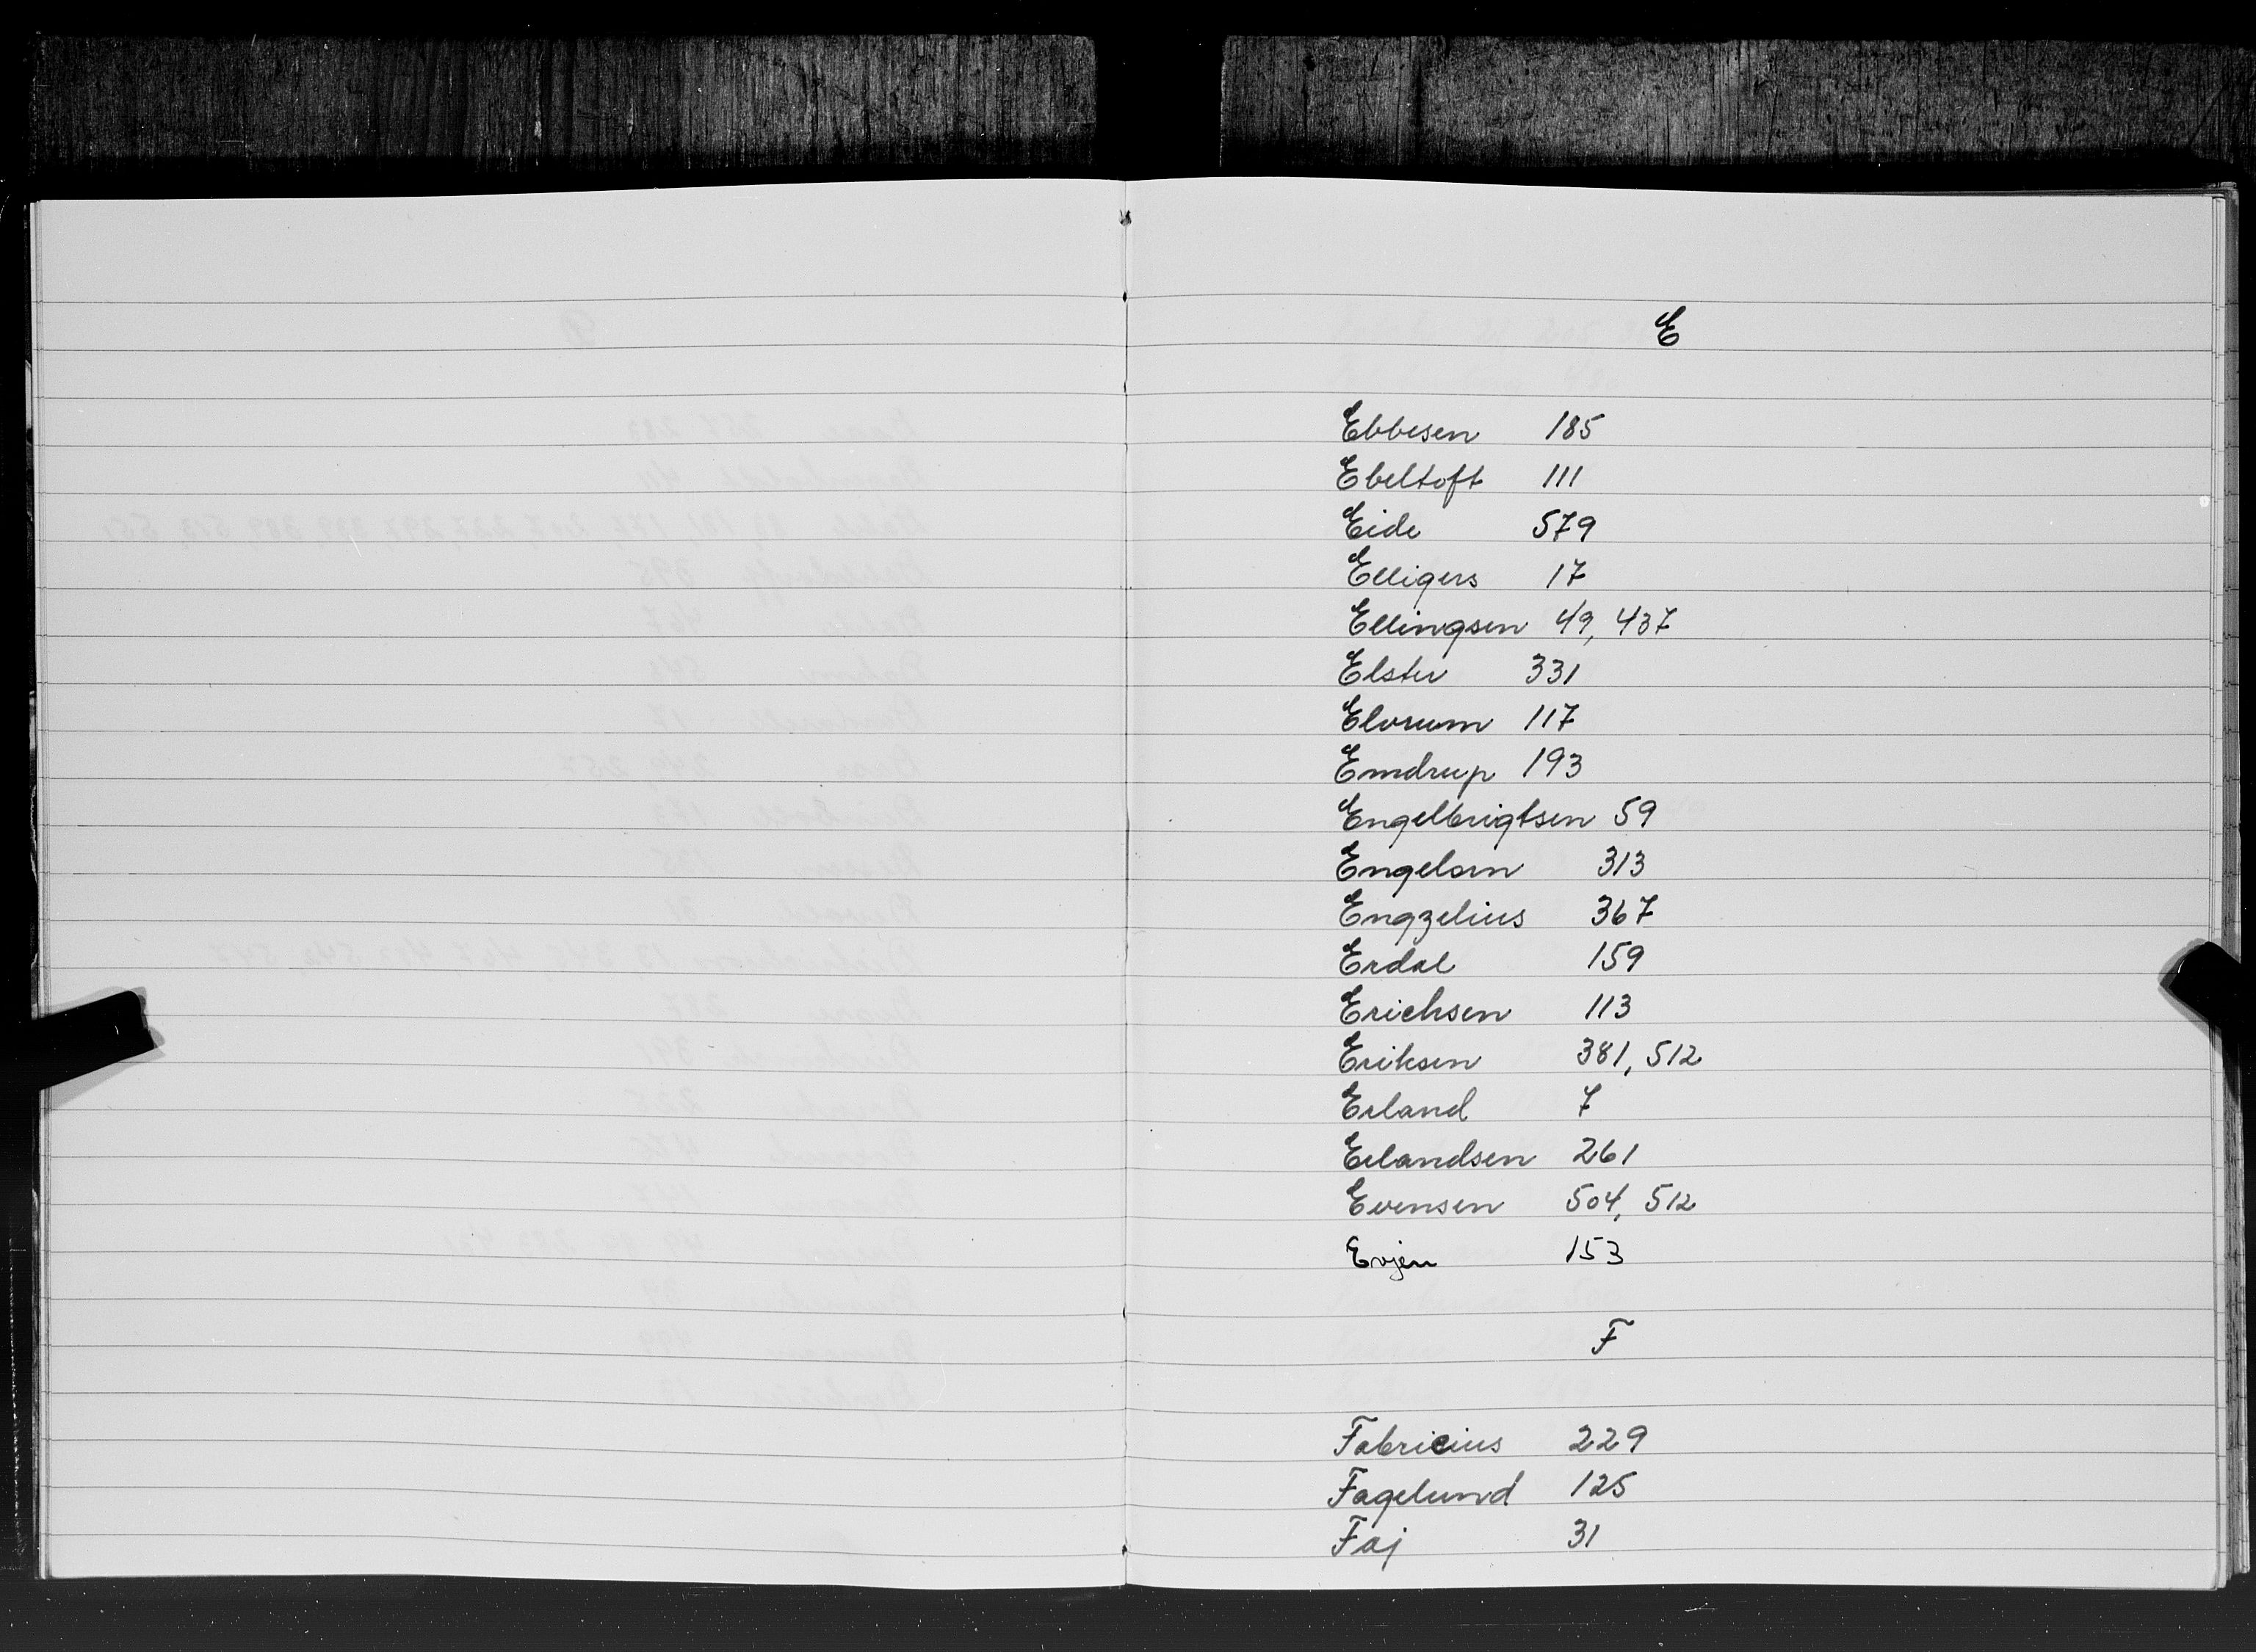 E
Ebbesen 185
Ebeltoft 111
Eide 579
Elligers 17
Ellingsen 49, 437
Elster 331
Elvrum 117
Emdrup 193
Engelbrigtsen 59
Engelsen 313
Engzelius 367
Erdal 159
Erichsen 113
Eriksen 381, 512
Erland 7
Erlandsen 261
Evensen 504, 512
Evjen 153
F
Fabricius 229
Fagelund 125
Faj 31